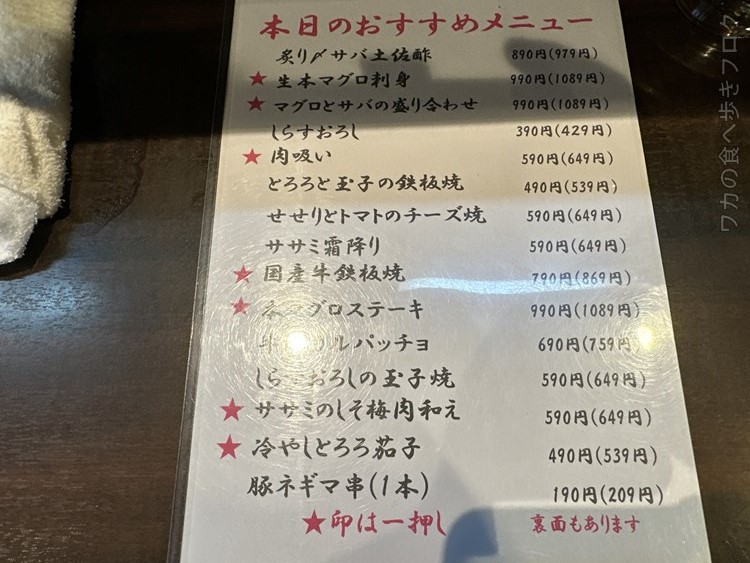 本日のおすすめメニュー
炙り〆サバ土佐酢 890円(979円)
★生本マグロ刺身 990円(1089円)
★マグロとサバの盛り合わせ 990円(1089円)
しらすおろし 390円(429円)
★肉吸い 590円(649円)
とろろと玉子の鉄板焼 490円(539円)
せせりとトマトのチーズ焼 590円(649円)
ササミ霜降り 590円(649円)
★国産牛鉄板焼 790円(869円)
★本マグロステーキ 990円(1089円)
牛 ルパッチョ 690円(759円)
しらすおろしの玉子焼 590円(649円)
★ササミのしそ梅肉和え 590円(649円)
★冷やしとろろ茄子 490円(539円)
豚ネギマ串(1本) 190円(209円)
★印は一押し 裏面もあります
ワカの食べ歩きブログ